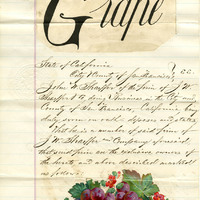 Grape
State of California
City & County of San Francisco } S.S.
John W. Shaeffer of the firm of J. W.
Shaeffer & Co. doing business in the City and
County of San Francisco, California being
duly sworn on oath deposes and states
That he is a member of said firm of
J. W. Shaeffer and Company
that said firm are the exclusive owners of
the
as follows: